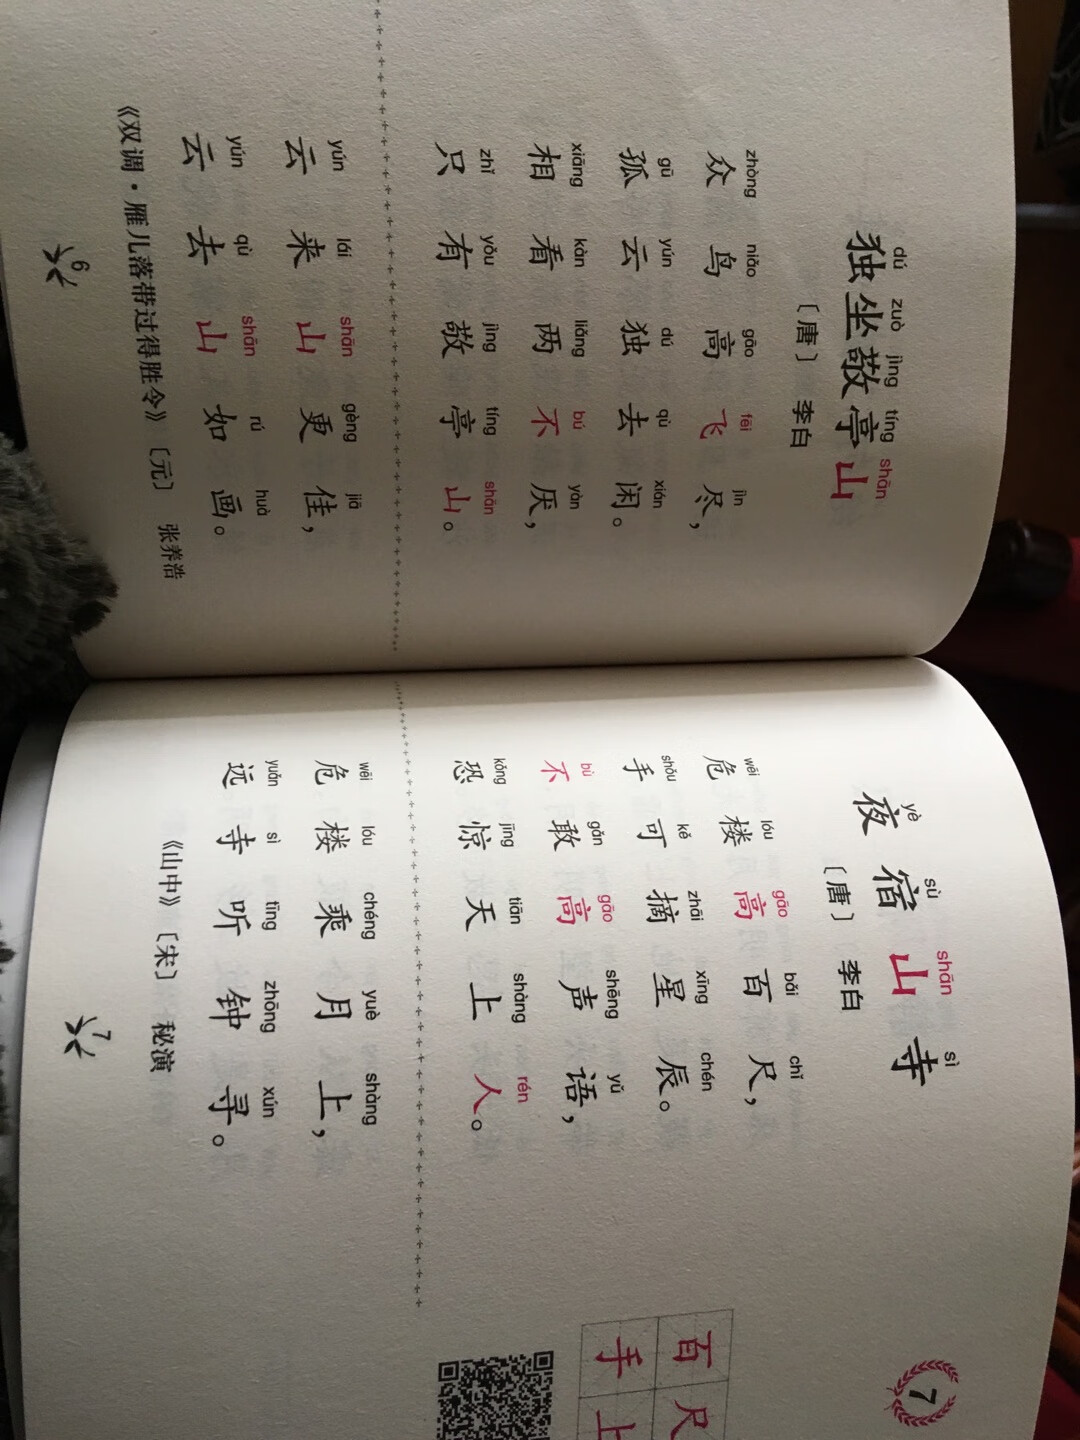 dú zuò jìng tíng shān
独坐敬亭山
〔唐〕 李白
zhòng niǎo gāo fēi jìn
众鸟高飞尽，
gū yún dú qù xián
孤云独去闲。
xiāng kàn liǎng bú yàn
相看两不厌，
zhǐ yǒu jìng tíng shān
只有敬亭山。
yún lái shān gèng jiā
云来山更佳，
yún qù shān rú huà
云去山如画。
《双调·雁儿落带过得胜令》〔元〕 张养浩
6
7
yè sù shān sì
夜宿山寺
〔唐〕 李白
wēi lóu gāo bǎi chǐ
危楼高百尺，
shǒu kě zhāi xīng chén
手可摘星辰。
bù gǎn gāo shēng yǔ
不敢高声语，
kǒng jīng tiān shàng rén
恐惊天上人。
百尺
手上
wēi lóu chéng yuè shàng
危楼乘月上，
yuǎn sì tīng zhōng xún
远寺听钟寻。
《山中》〔宋〕 秘演
7